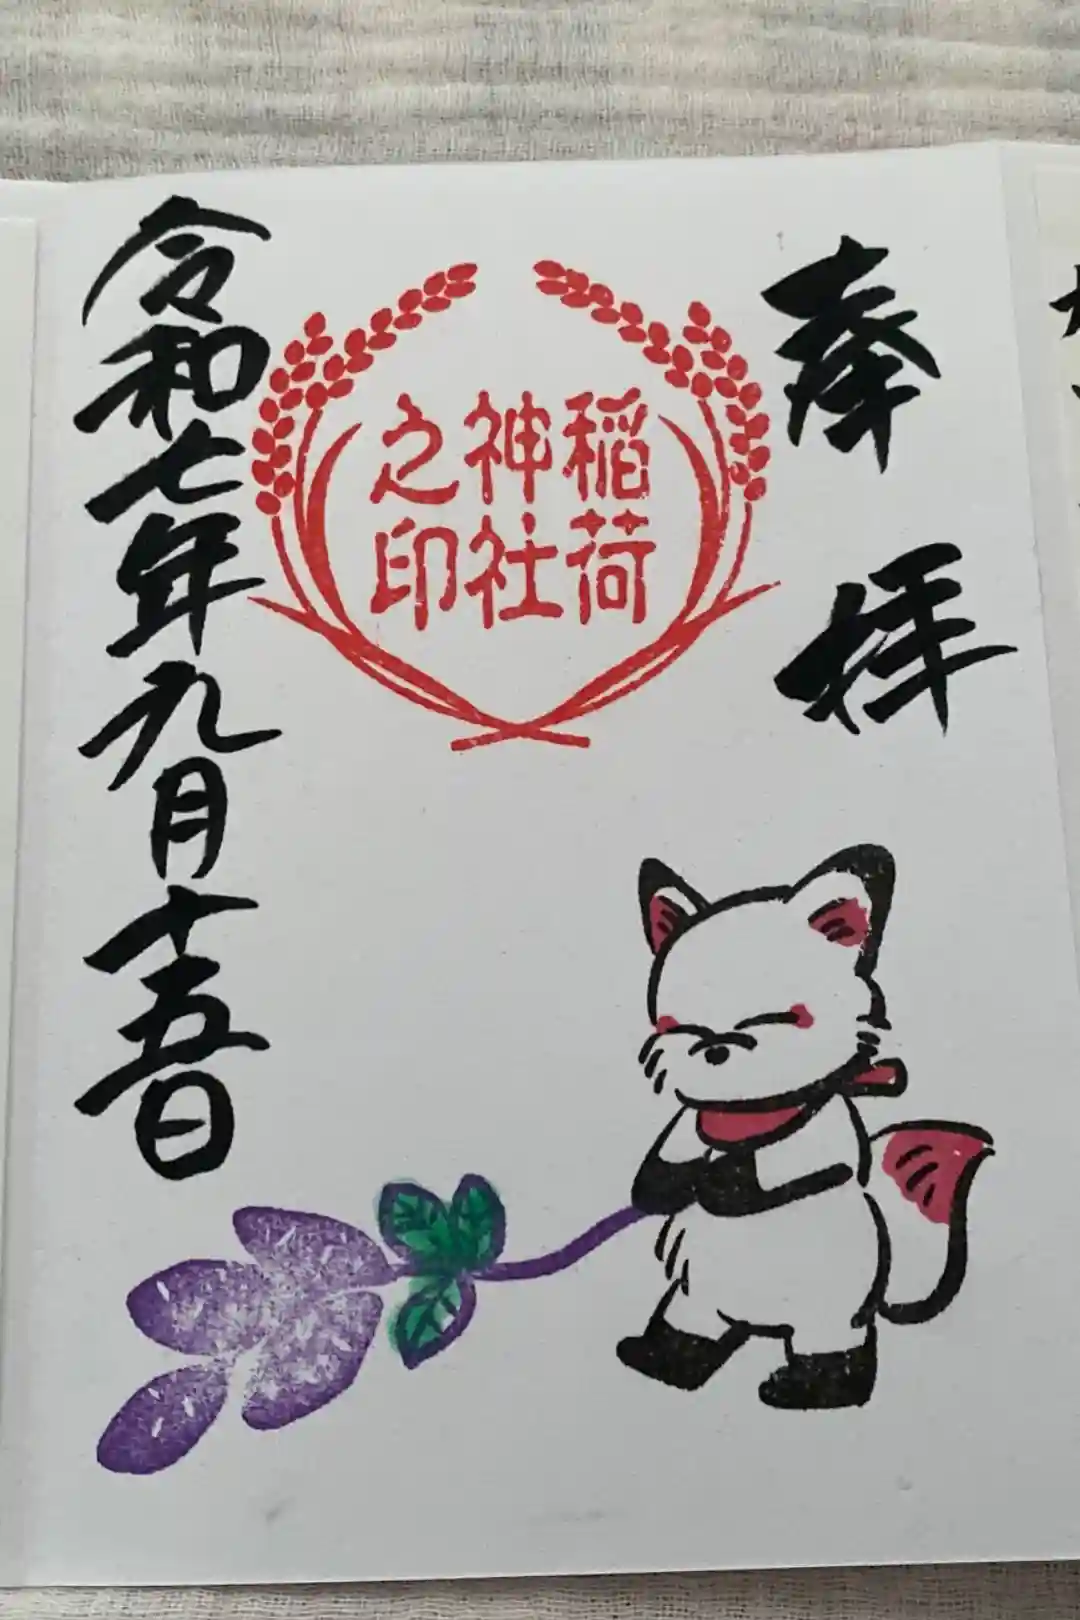 奉拝
稲荷
神社
之印
令和七年九月十五日